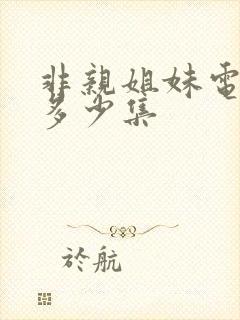 非親姐妹電
多少集
於航